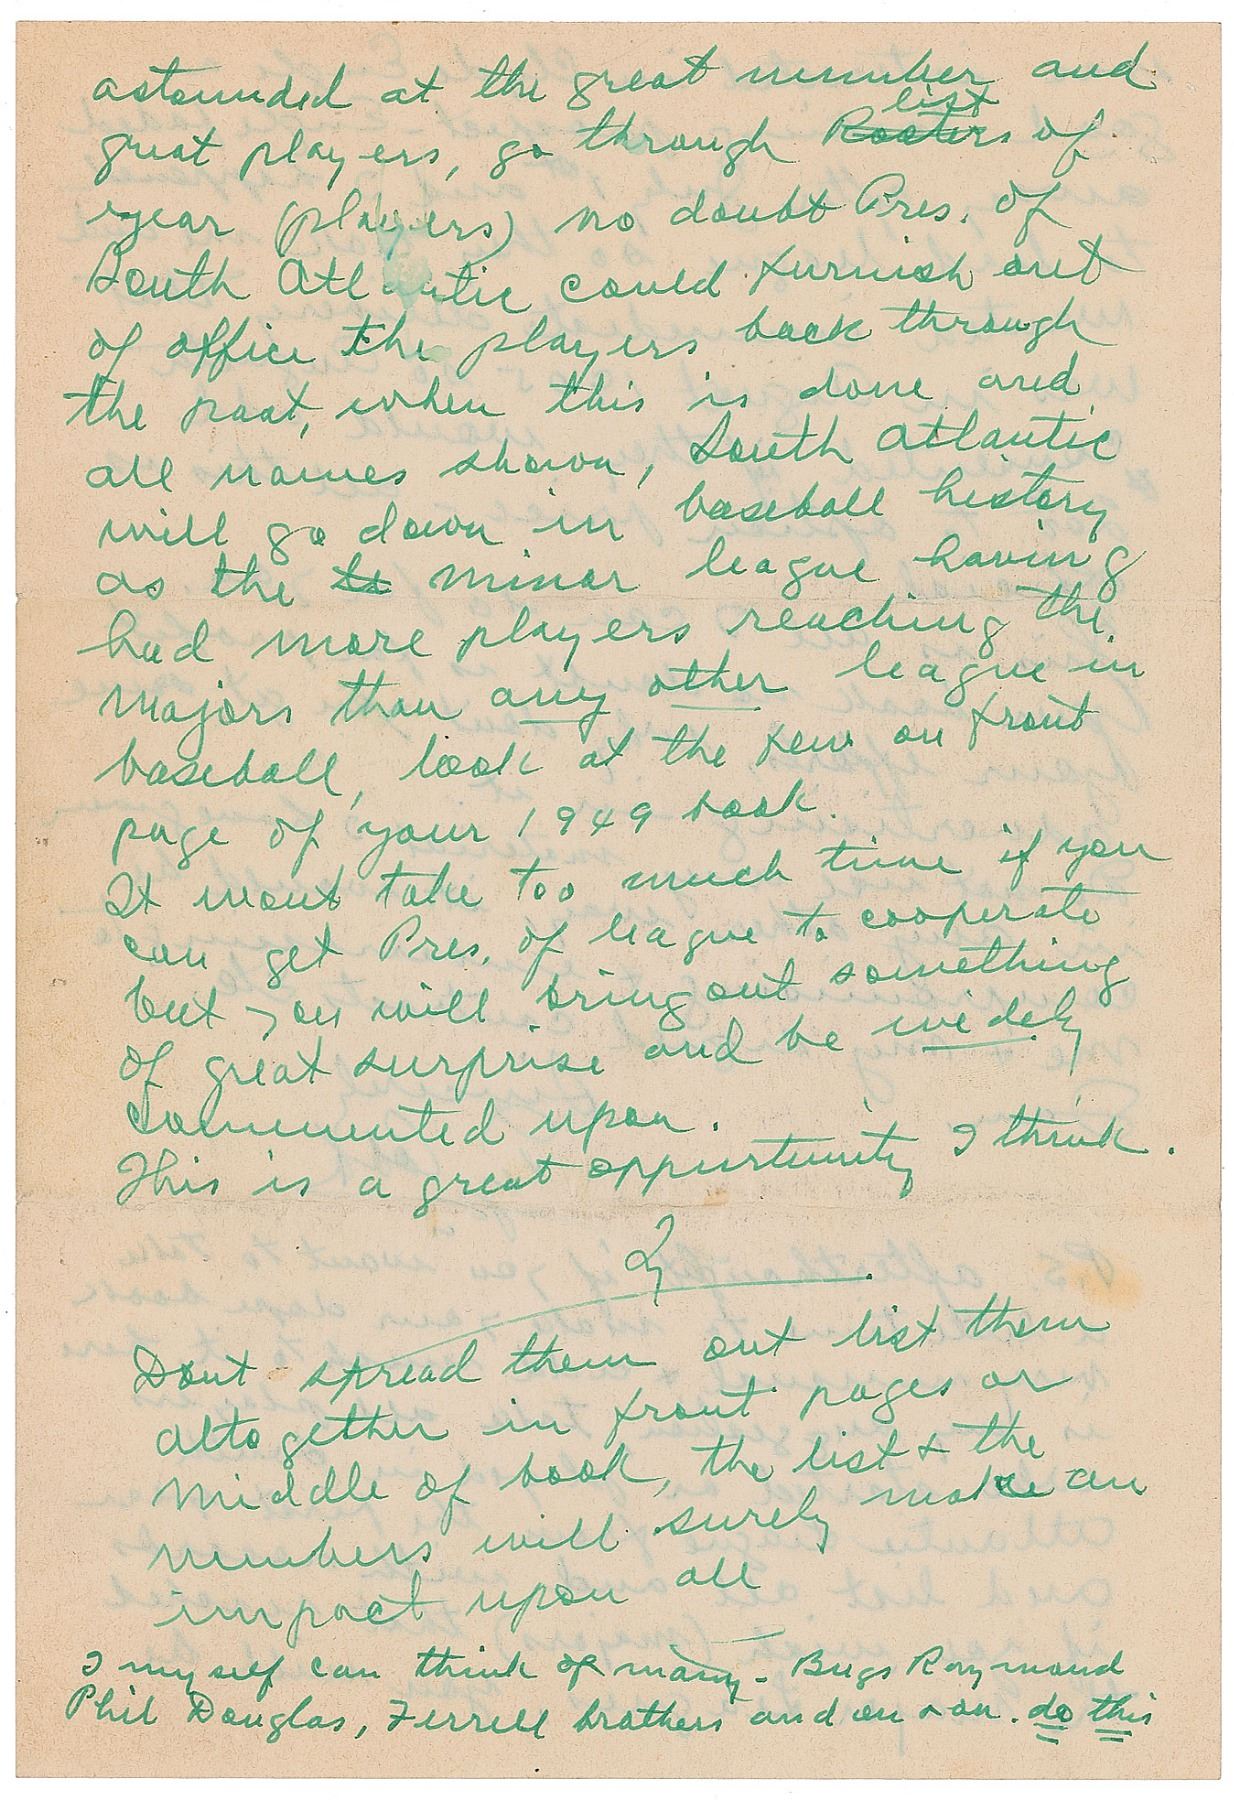 astounded at the great number and
great players, go through ~~Rosters~~ list of
year (players) no doubt Pres. of
South Atlantic could furnish out
of office the players back through
the past, when this is done and
all names shown, South Atlantic
will go down in baseball history
as the minor league having
had more players reaching the
majors than any other league in
baseball, look at the few on front
page of your 1949 book.
It wont take too much time if you
can get Pres. of league to cooperate
but you will bring out something
of great surprise and be widely
commented upon.
This is a great oppurtunity I think.
Dont spread them out list them
altogether in front pages or
middle of book, the list & the
numbers will surely make an
impact upon all
I myself can think of many - Bugs Raymond
Phil Douglas, Ferrell brothers and on & on. do this